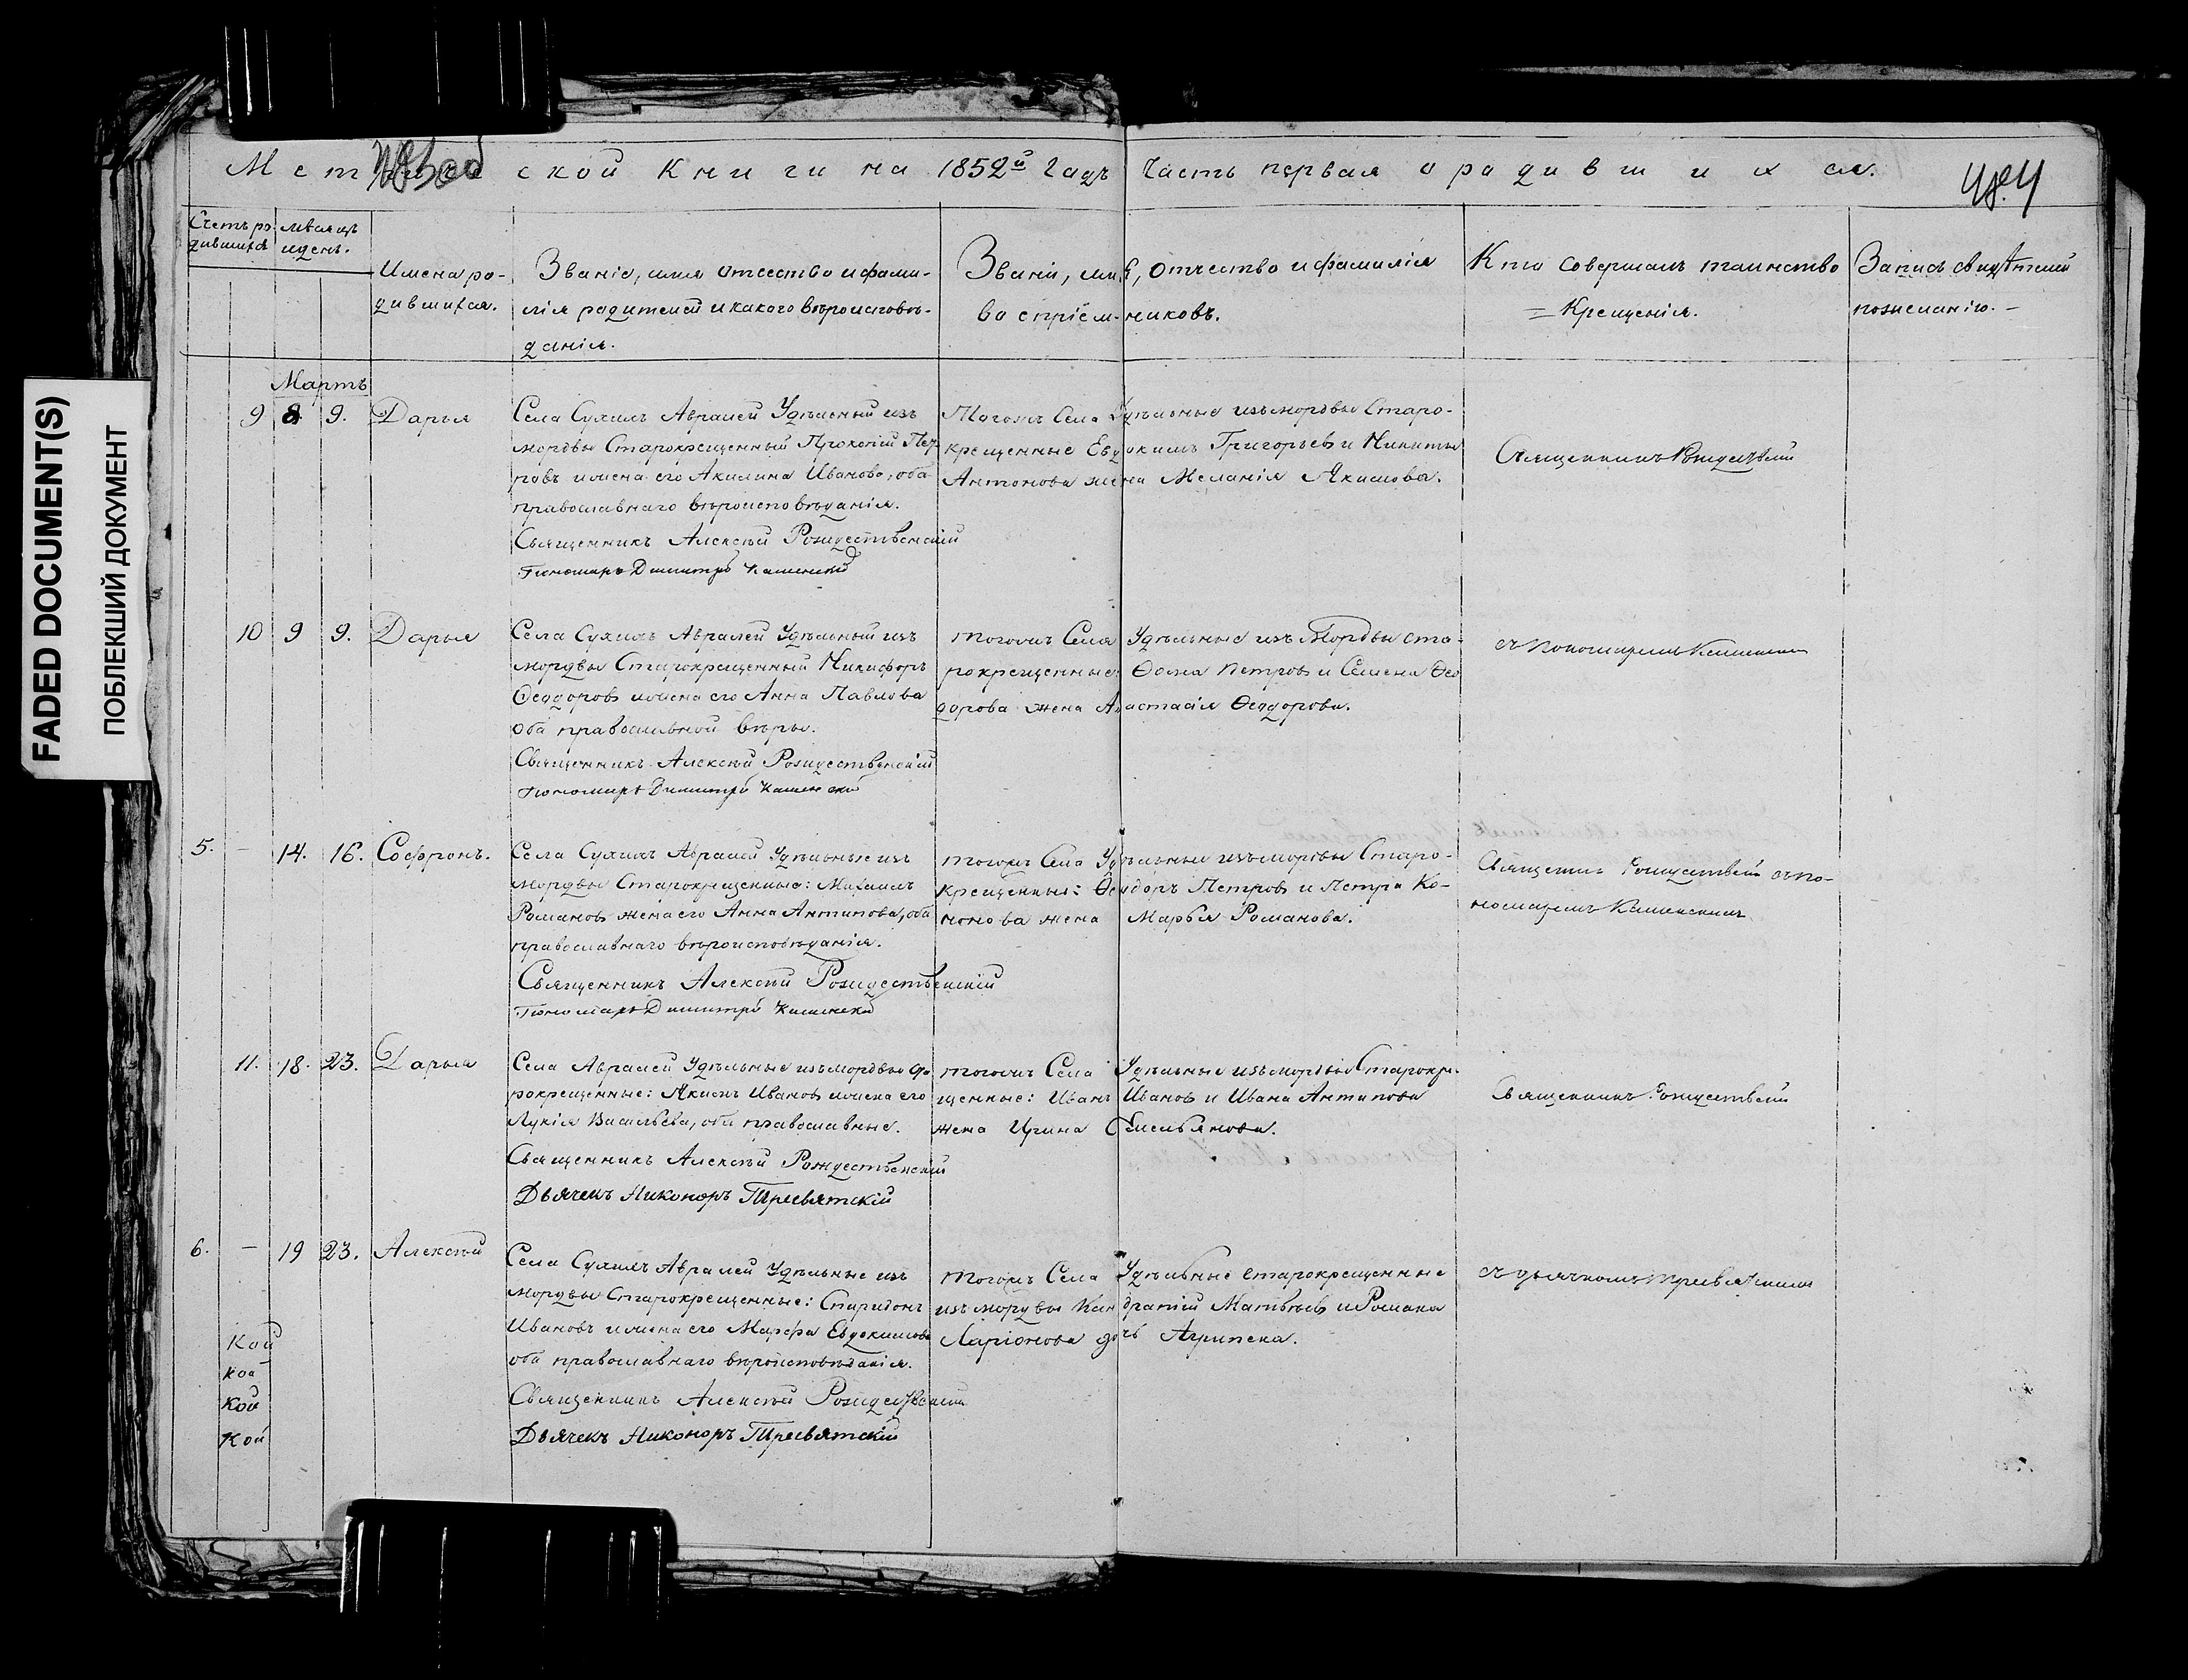 FADED DOCUMENT(S)
ПОБЛЕКШИЙ ДОКУМЕНТ
Метрической Книги на 1852й Годъ Часть первая о родившихся.
Счетъ ро-
дившихся
мѣсяцъ
и день.
Имена ро-
дившихся.
Званіе, имя отчество и фами-
лія родителей и какого вѣроисповѣ-
данія.
Званіи, имя, отчество и фамилія
воспріемниковъ.
Кто совершалъ таинство
= Крещенія.
Запись свидѣтелей
по желанію. -
Мартъ
9 8 9. Дарья
Села Сухихъ Авралей Удѣльный изъ
мордвы Старокрещенный Прокопій Пет
ровъ и жена его Акилина Иванова, оба
православнаго вѣроисповѣданія.
Священникъ Алексѣй Рождественскій
Пономарь Димитрій Каменскій
Тогожъ Села Удѣльные изъ мордвы Старо-
крещенные Евдокимъ Григорьевъ и Никиты
Антонова жена Меланія Якимова.
Священникъ Рождествен
10 9 9. Дарья
Села Сухихъ Авралей Удѣльный изъ
мордвы Старокрещенный Никифоръ
Ѳеодоровъ и жена его Анна Павлова
оба православной вѣры.
Священникъ Алексѣй Рождественскій
Пономарь Димитрій Каменскій
тогожъ Села Удѣльные изъ Мордвы ста-
рокрещенные: Ѳома Петровъ и Семена Ѳео
дорова жена Анастасія Ѳеодорова.
съ пономаремъ Каменским
5. - 14. 16. Софронъ.
Села Сухихъ Авралей Удѣльные изъ
мордвы Старокрещенные: Михаилъ
Романовъ жена его Анна Антипова, оба
православнаго вѣроисповѣданія.
Священникъ Алексѣй Рождественскій
Пономарь Димитрій Каменскій
тогожъ Села Удѣльные изъ мордвы Старо-
крещенные: Ѳеодоръ Петровъ и Петра Ко-
нонова жена Марья Романова.
Священникъ Рождествен съ по-
номаремъ Каменскимъ
11. 18. 23. Дарья
Села Авралей Удѣльные изъ мордвы Ста
рокрещенные: Якимъ Ивановъ и жена его
Лукія Васильева, оба православные.
Священникъ Алексѣй Рождественскій
Дьячекъ Никоноръ Тресвятскій
тогожъ Села Удѣльные изъ мордвы Старокре-
щенные: Иванъ Ивановъ и Ивана Антипова
жена Ирина Емельянова.
Священникъ Рождествен
6. - 19 23. Алексѣй
Села Сухихъ Авралей Удѣльные изъ
мордвы Старокрещенные: Спиридонъ
Ивановъ и жена его Марфа Евдокимова
оба православнаго вѣроисповѣданія.
Священникъ Алексѣй Рождественскій
Дьячекъ Никоноръ Тресвятскій
тогожъ Села Удѣльные старокрещенные
изъ мордвы Кондратій Матвѣевъ и Романа
Ларіонова дочь Агрипена.
съ дьячкомъ Тресвятским
Кой
кой
Кой
Кой